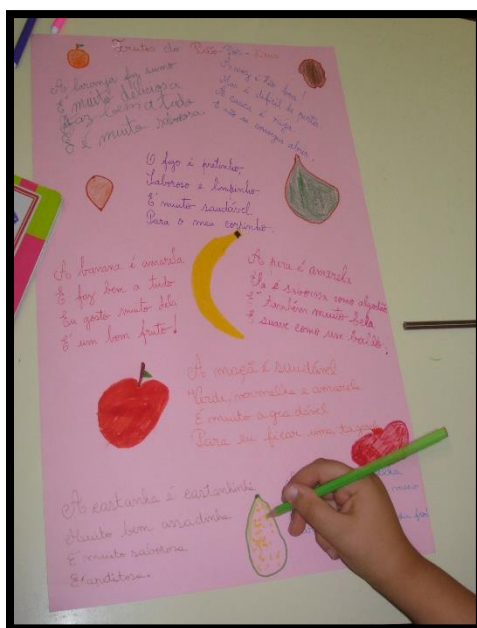 Frutos do Pão-Por-Deus
A laranja faz sumo
É muito deliciosa
Faz bem a tudo
E é muito saborosa.
A noz é tão boa!
Mas é difícil de partir
A casca é rija
E não se consegue abrir.
O figo é pretinho,
Saboroso e limpinho
É muito saudável
Para o meu corpinho.
A banana é amarela
E faz bem a tudo
Eu gosto muito dela
É um bom fruto!
A pera é amarela
Ela é saborosa como algodão
É também muito bela
E suave como um balão.
A maçã é saudável
Verde, vermelha e amarela
É muito agradável
Para eu ficar uma
A castanha é castanhinha
Muito bem assadinha
É muito saborosa
E apetitosa.